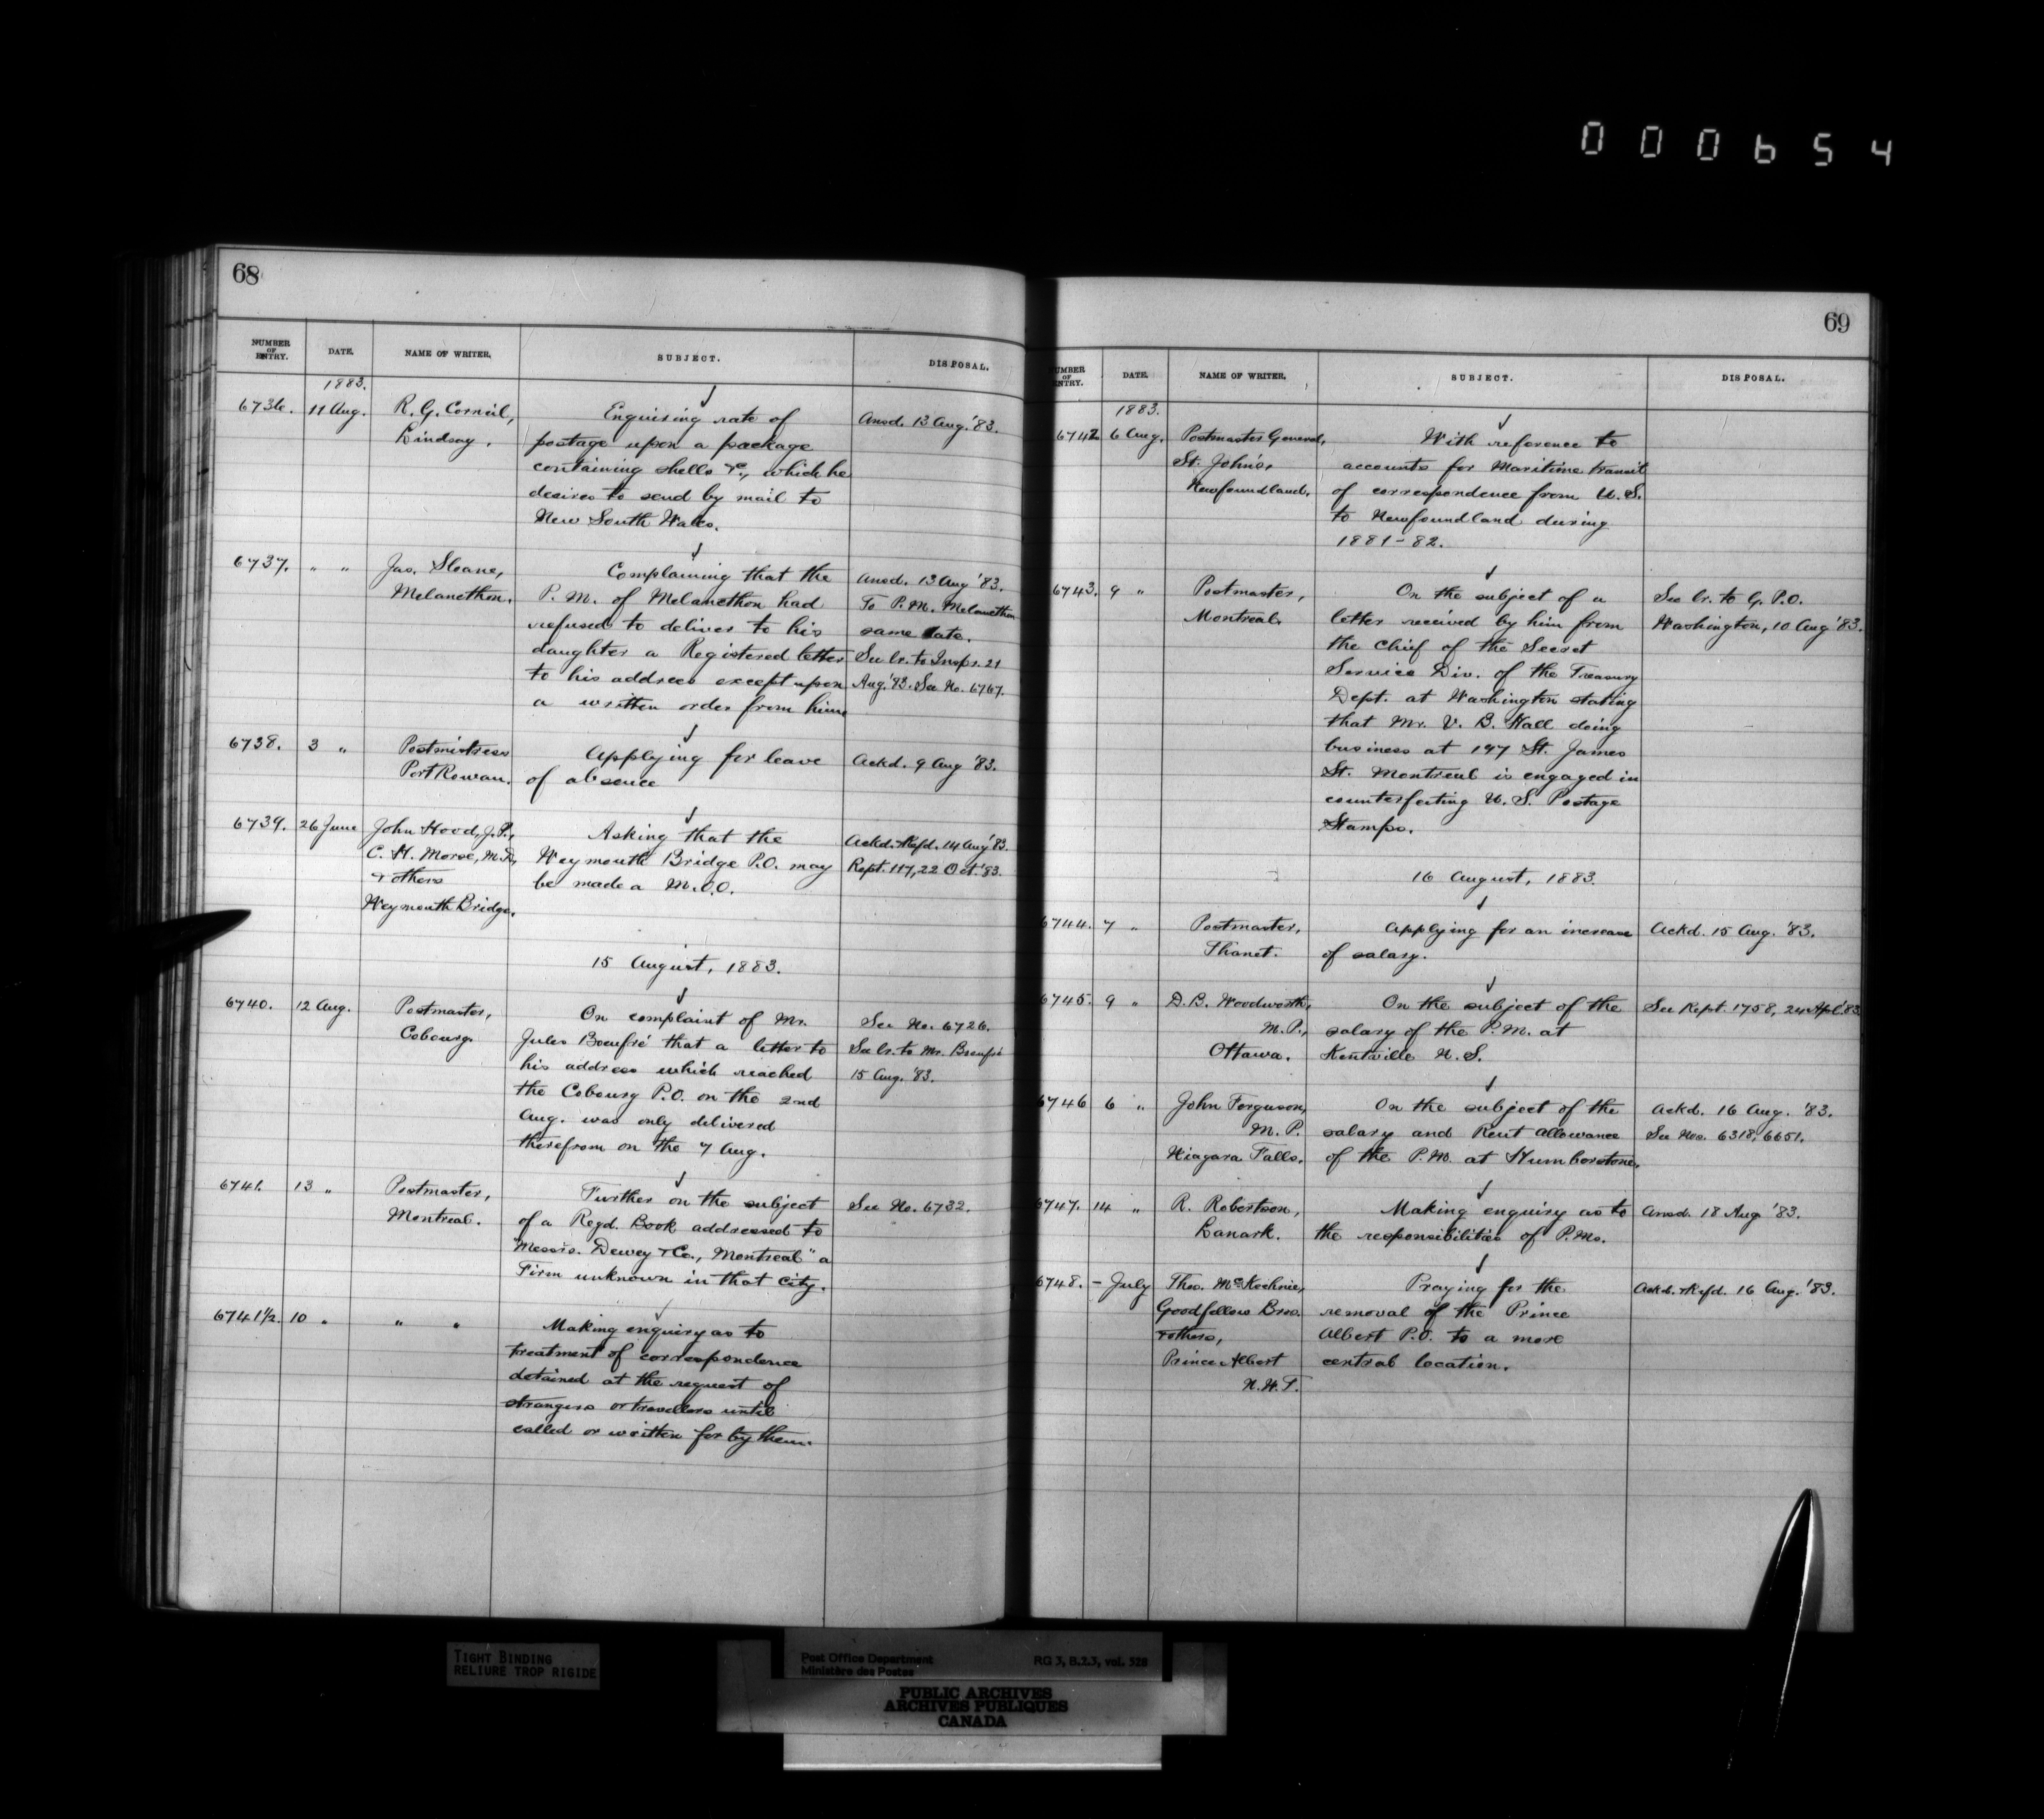 000654
68
NUMBER OF ENTRY. DATE. NAME OF WRITER. SUBJECT. DISPOSAL.
1883.
6736. 11 Aug. R. G. Corneil, Enquiring rate of Ansd. 13 Aug. '83.
Lindsay. postage upon a package
containing shells &c., which he
desires to send by mail to
New South Wales.
6737. " " Jas. Sloane, Complaining that the Ansd. 13 Aug '83.
Melancthon. P. M. of Melancthon had To P. M. Melancthon
refused to deliver to his same date.
daughter a Registered letter See lr. to Inspr. 21
to his address except upon Aug. '83. See No. 6767.
a written order from him.
6738. 3 " Postmistress Applying for leave Ackd. 9 Aug '83.
Port Rowan. of absence
6739. 26 June John Hood, J.P., Asking that the Ackd. & Refd. 14 Aug '83.
C. H. Morse, M.D., Weymouth Bridge P.O. may Rept. 117, 22 Oct. '83.
& others be made a M.O.O.
Weymouth Bridge.
15 August, 1883.
6740. 12 Aug. Postmaster, On complaint of Mr. See No. 6726.
Cobourg. Jules Boeufré that a letter to See lr. to Mr. Boeufré
his address which reached 15 Aug. '83.
the Cobourg P.O. on the 2nd
Aug. was only delivered
therefrom on the 7 Aug.
6741. 13 " Postmaster, Further on the subject See No. 6732.
Montreal. of a Regd. Book addressed to
"Messrs. Dewey & Co., Montreal" a
Firm unknown in that City.
6741½. 10 " " " Making enquiry as to
treatment of correspondence
detained at the request of
strangers or travellers until
called or written for by them.
69
NUMBER OF ENTRY. DATE. NAME OF WRITER. SUBJECT. DISPOSAL.
1883.
6742 6 Aug. Postmaster General, With reference to
St. John's, accounts for Maritime transit
Newfoundland. of correspondence from U. S.
to Newfoundland during
1881-82.
6743. 9 " Postmaster, On the subject of a See lr. to G. P.O.
Montreal. letter received by him from Washington, 10 Aug '83.
the Chief of the Secret
Service Div. of the Treasury
Dept. at Washington stating
that Mr. V. B. Hall doing
business at 197 St. James
St. Montreal is engaged in
counterfeiting U. S. Postage
Stamps.
16 August, 1883.
6744. 7 " Postmaster, Applying for an increase Ackd. 15 Aug. '83.
Thanet. of salary.
6745. 9 " D. B. Woodworth, On the subject of the See Rept. 1758, 24 Apl. '83
M. P., salary of the P. M. at
Ottawa. Kentville N. S.
6746 6 " John Ferguson, On the subject of the Ackd. 16 Aug. '83.
M. P. salary and Rent Allowance See Nos. 6318, 6651.
Niagara Falls. of the P. M. at Humberstone.
6747. 14 " R. Robertson, Making enquiry as to Ansd. 18 Aug '83.
Lanark. the responsibilities of P.Ms.
6748. - July Thos. McKechnie, Praying for the Ackd. & Refd. 16 Aug. '83.
Goodfellow Bros. removal of the Prince
& others, Albert P.O. to a more
Prince Albert central location.
N. W. T.
TIGHT BINDING
RELIURE TROP RIGIDE
Post Office Department RG 3, B.2.3, vol. 528
Ministère des Postes
PUBLIC ARCHIVES
ARCHIVES PUBLIQUES
CANADA